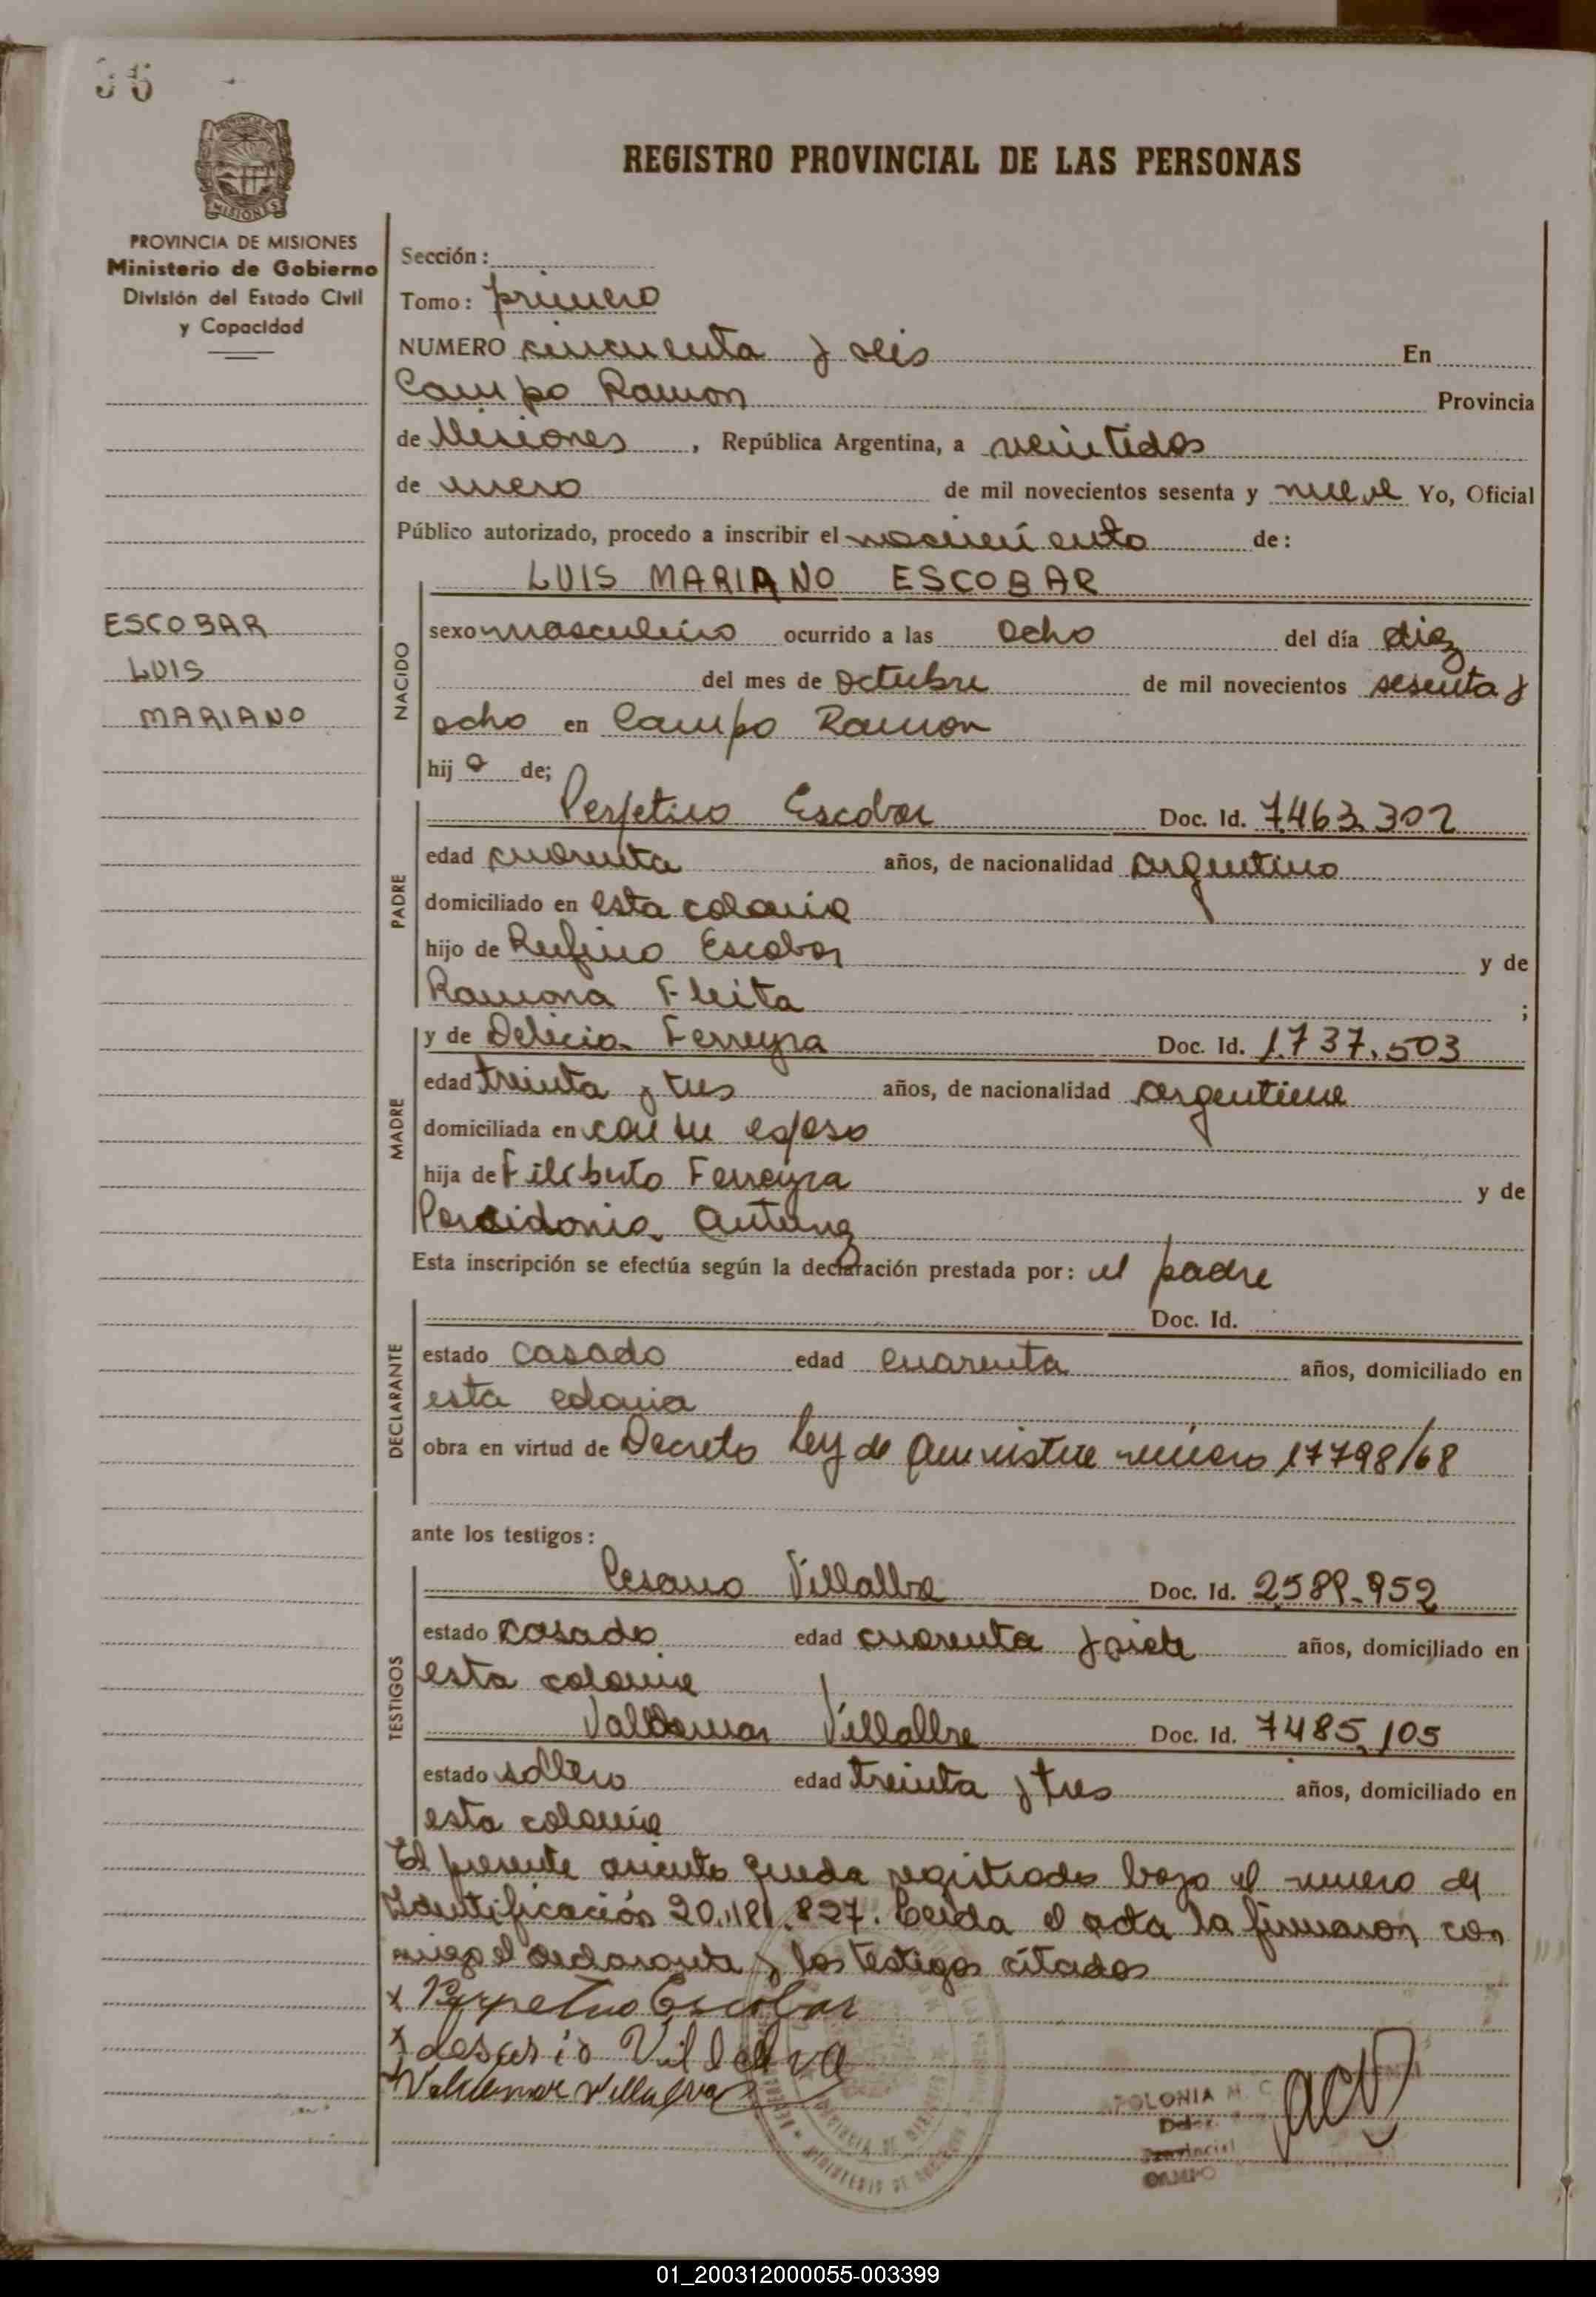 REGISTRO PROVINCIAL DE LAS PERSONAS
PROVINCIA DE MISIONES
Ministerio de Gobierno
División del Estado Civil
y Capacidad
Sección:
Tomo: primero
NUMERO cincuenta y seis En
Campo Ramon Provincia
de Misiones, República Argentina, a veintidos
de enero de mil novecientos sesenta y nueve Yo, Oficial
Público autorizado, procedo a inscribir el nacimiento de:
LUIS MARIANO ESCOBAR
ESCOBAR
LUIS
MARIANO
NACIDO
sexo masculino ocurrido a las ocho del día diez
del mes de octubre de mil novecientos sesenta y
ocho en Campo Ramon
hijo de;
PADRE
Escobar Doc. Id. 7.463.302
edad cuarenta años, de nacionalidad argentino
domiciliado en esta colonia
hijo de Rufino Escobar y de
Ramona Fleita ;
MADRE
y de Delicia Ferreyra Doc. Id. 1.737.503
edad treinta y tres años, de nacionalidad argentina
domiciliada en con su esposo
hija de Filiberto Ferreyra y de
Esta inscripción se efectúa según la declaración prestada por: el padre
DECLARANTE
Doc. Id.
estado casado edad cuarenta años, domiciliado en
esta colonia
obra en virtud de Decreto Ley de amnistia número 17798/68
ante los testigos:
TESTIGOS
Cesario Villalba Doc. Id. 2.589.952
estado casado edad cuarenta y siete años, domiciliado en
esta colonia
Valdemar Villalba Doc. Id. 7.485.105
estado soltero edad treinta y tres años, domiciliado en
esta colonia
El presente asiento queda registrado bajo el numero de
Identificación 20.181.827. Leida el acta la firmaron con
migo el declarante y los testigos citados
x Perpetuo Escobar
x Villalva
x Valdemar Villalva
APOLONIA M. C
Provincial
CAMPO
01_200312000055-003399